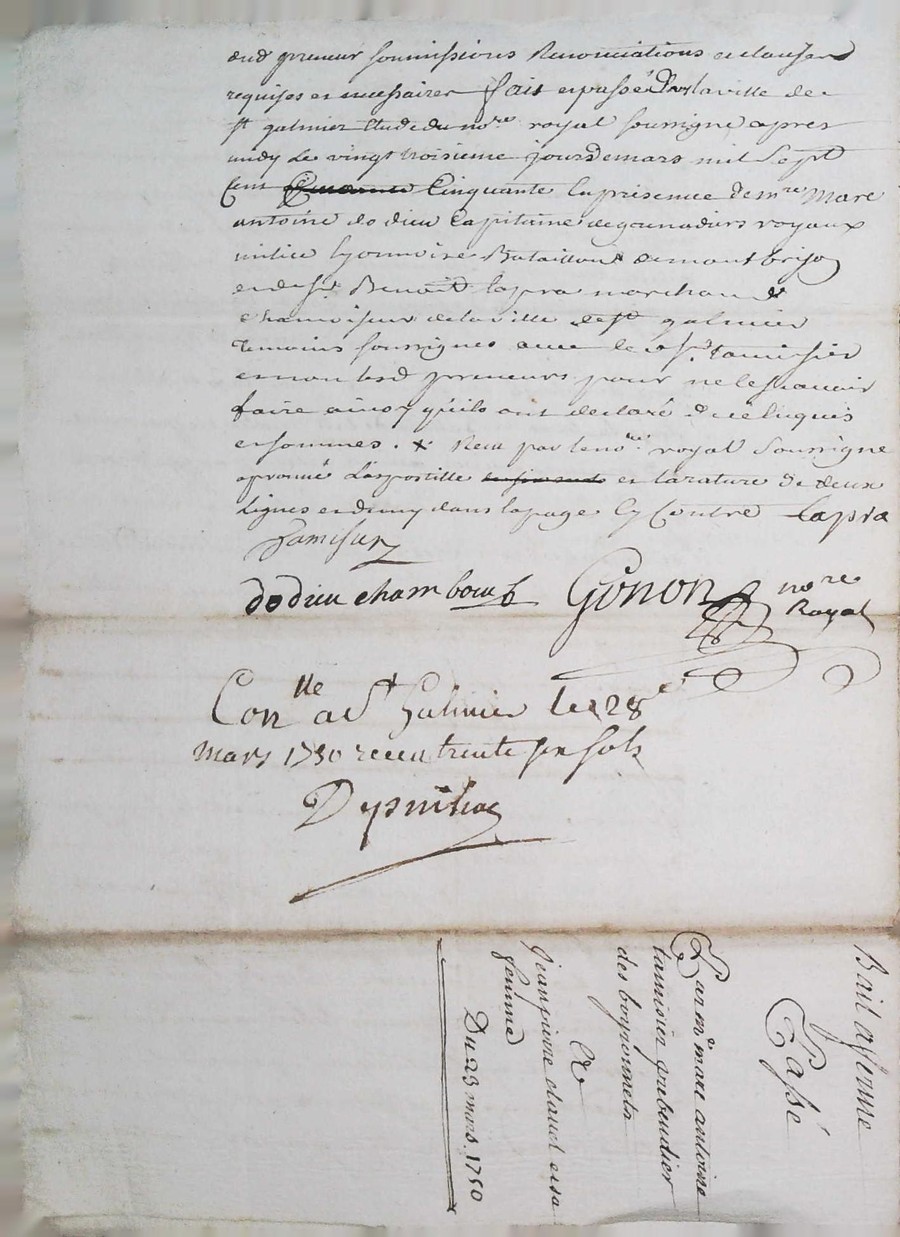 preneur soumissions Renonciations et clauses
requises et necessaires fait et passé la ville de
st galmier Etude du nore royal soussigné apres
midy Le vingt troisieme jour de mars mil Sept
Cent Cinquante En presence de mre Marc
antoine dodieu Capitaine de grenadiers royaux
milice lyonnoise Bataillon de montbrison
et de sr. Benoit lapra marchand
chamoiseur de la ville de st galmier
temoins soussignes avec le sr. tamisier
et non lesd preneurs pour ne le scavoir
faire ainsy qu'ils ont declaré de ce enquis
et sommes. x par le nre royal Soussigne
aprouvé L'apostille et la rature de deux
Lignes et demy dans la page Cy Contre Lapra
Tamisier
dodieu chambourg Gonon nore
Royal
Conlle a St Galmier le 28e
mars 1750 receu trente sols
Bail a ferme
Passé
Par mr marc antoine
tamisier prebendier
des
A
jean pierre claud et sa
femme
Du 23 mars 1750